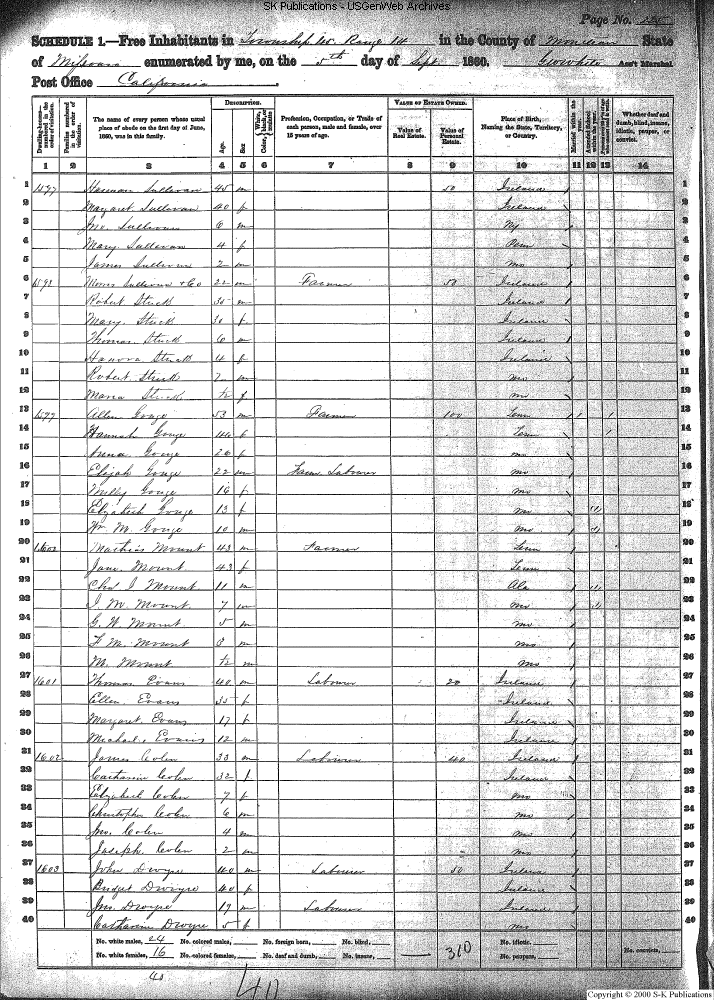 SK Publications - USGenWeb Archives
Page No.
SCHEDULE 1.—Free Inhabitants in Township 45 Range 14 in the County of Moniteau State
of Missouri enumerated by me, on the 5th day of Sept 1860. Geo White Ass't Marshal
Post Office California.
Dwelling-houses—numbered in the order of visitation.
Families numbered in the order of visitation.
The name of every person whose usual place of abode on the first day of June, 1860, was in this family.
Description.
Age.
Sex
Color, White, black, or mulatto
Profession, Occupation, or Trade of each person, male and female, over 15 years of age.
Value of Estate Owned.
Value of Real Estate.
Value of Personal Estate.
Place of Birth, Naming the State, Territory, or Country.
Married within the year.
Whether deaf and dumb, blind, insane, idiotic, pauper, or convict.
1 2 3 4 5 6 7 8 9 10 11 12 13 14
1 1597 Sullivan 45 m 50 Ireland 1
2 Margaret Sullivan 40 f Ireland 2
3 Jno Sullivan 6 m NY 3
4 Mary Sullivan 4 f Penn 4
5 James Sullivan 2 m Mo 5
6 1598 Sullivan & Co 22 m Farmer 50 Ireland 6
7 Robert Stuck 35 m Ireland 7
8 Mary Stuck 30 f Ireland 8
9 Thomas Stuck 6 m Ireland 9
10 Hanora Stuck 4 f Ireland 10
11 Robert Stuck 2 m Mo 11
12 Maria Stuck ½ f Mo 12
13 1599 Allen Gouge 53 m Farmer 100 Tenn 13
14 Hannah Gouge 44 f Tenn 14
15 Gouge 26 f Mo 15
16 Elijah Gouge 22 m Farm Labourer Mo 16
17 Milly Gouge 16 f Mo 17
18 Elizabeth Gouge 13 f Mo 18
19 Wm M. Gouge 10 m Mo 19
20 1600 Mathias Mount 43 m Farmer Tenn 20
21 Jane Mount 43 f Tenn 21
22 Chs J Mount 11 m Ala 22
23 J. M. Mount 7 m Mo 23
24 G. W. Mount 5 m Mo 24
25 F. M. Mount 3 m Mo 25
26 M. Mount ½ m Mo 26
27 1601 Thomas Evans 40 m Labourer 20 Ireland 27
28 Ellen Evans 35 f Ireland 28
29 Margaret Evans 17 f Ireland 29
30 Michael Evans 12 m Ireland 30
31 1602 James Colen 33 m Labourer 40 Ireland 31
32 Catharine Colen 32 f Ireland 32
33 Elizabeth Colen 7 f Mo 33
34 Christopher Colen 6 m Mo 34
35 Jno. Colen 4 m Mo 35
36 Joseph Colen 2 m Mo 36
37 1603 John Dwyre 40 m Labourer 50 Ireland 37
38 Bridget Dwyre 40 f Ireland 38
39 Jno. Dwyre 17 m Labourer Ireland 39
40 Catharine Dwyre 5 f Mo 40
No. white males, 24 No. colored males, No. foreign born, No. blind, 310 No. idiotic,
No. white females, 16 No. colored females, No. deaf and dumb, No. insane, No. paupers, No. convicts,
40
40
Copyright © 2000 S-K Publications